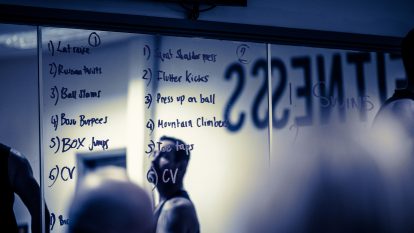 ①
1) Lat raise
2) Russian twists
3) Ball Slams
4) Bosu Burpees
5) BOX Jumps
6) CV
②
1) Seat Shoulder press
2) Flutter Kicks
3) Press up on ball
4) Mountain Climbers
5) Toe taps
6) CV
FITNESS
1)